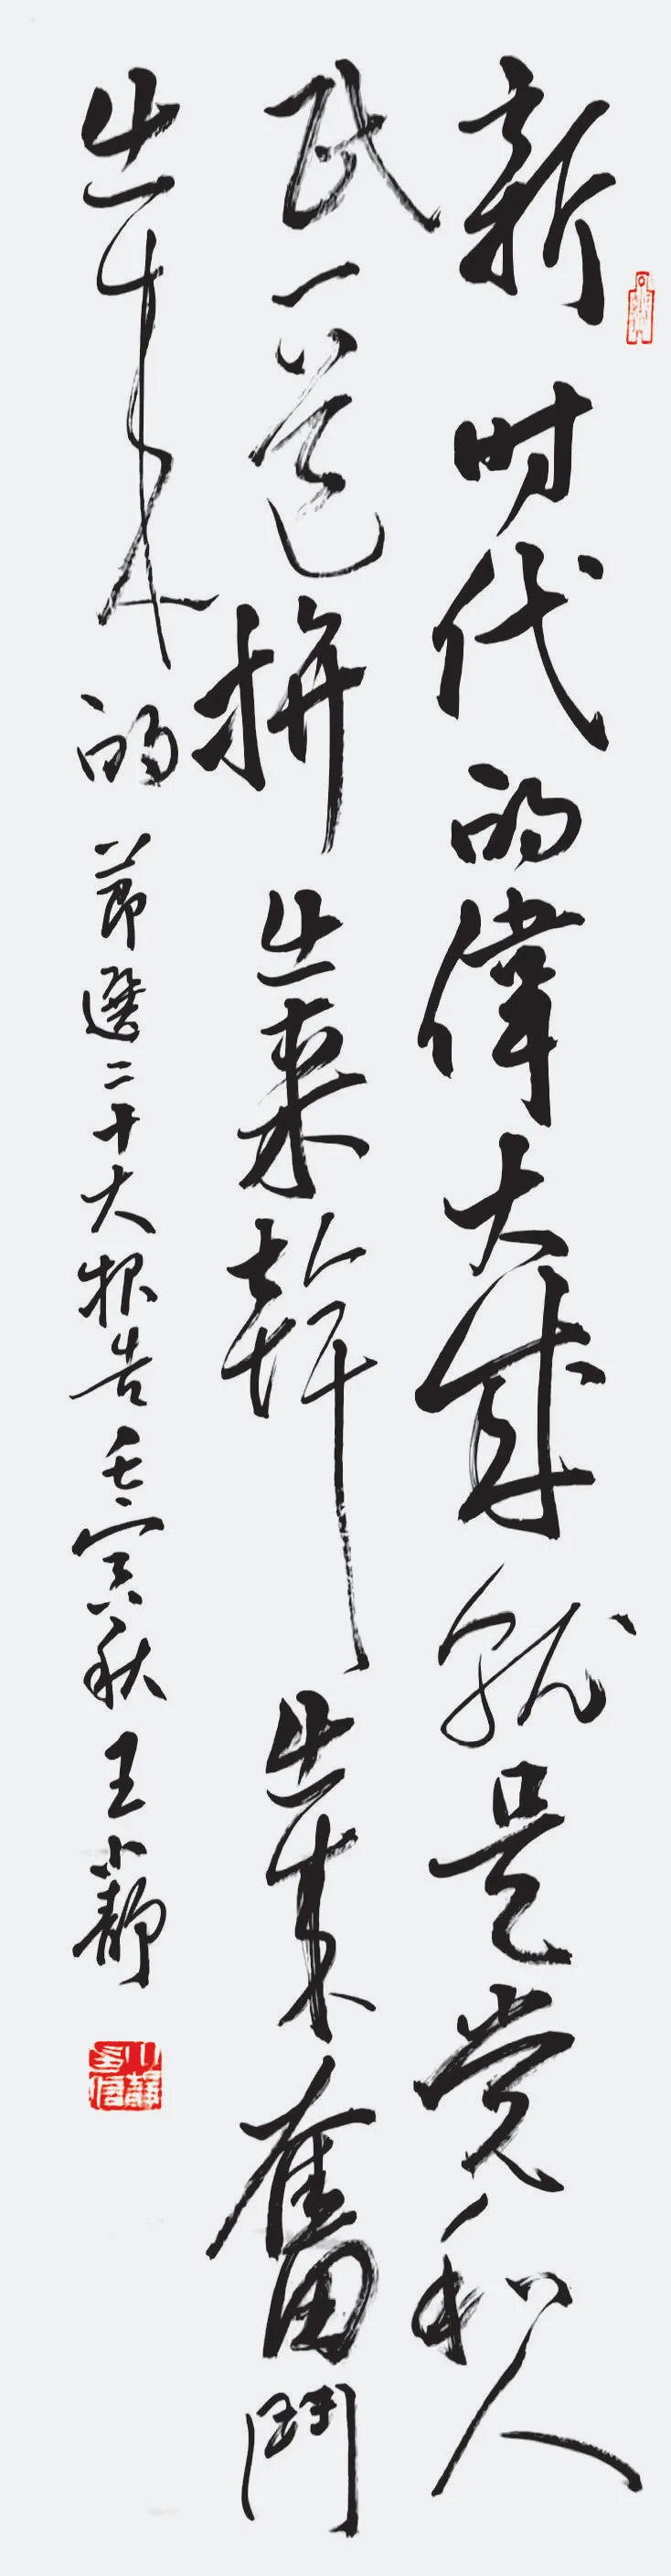 新时代的偉大成就是党和人
民一道拼出来幹出来奮鬥
出来的
節選二十大报告 壬寅秋 王小靜